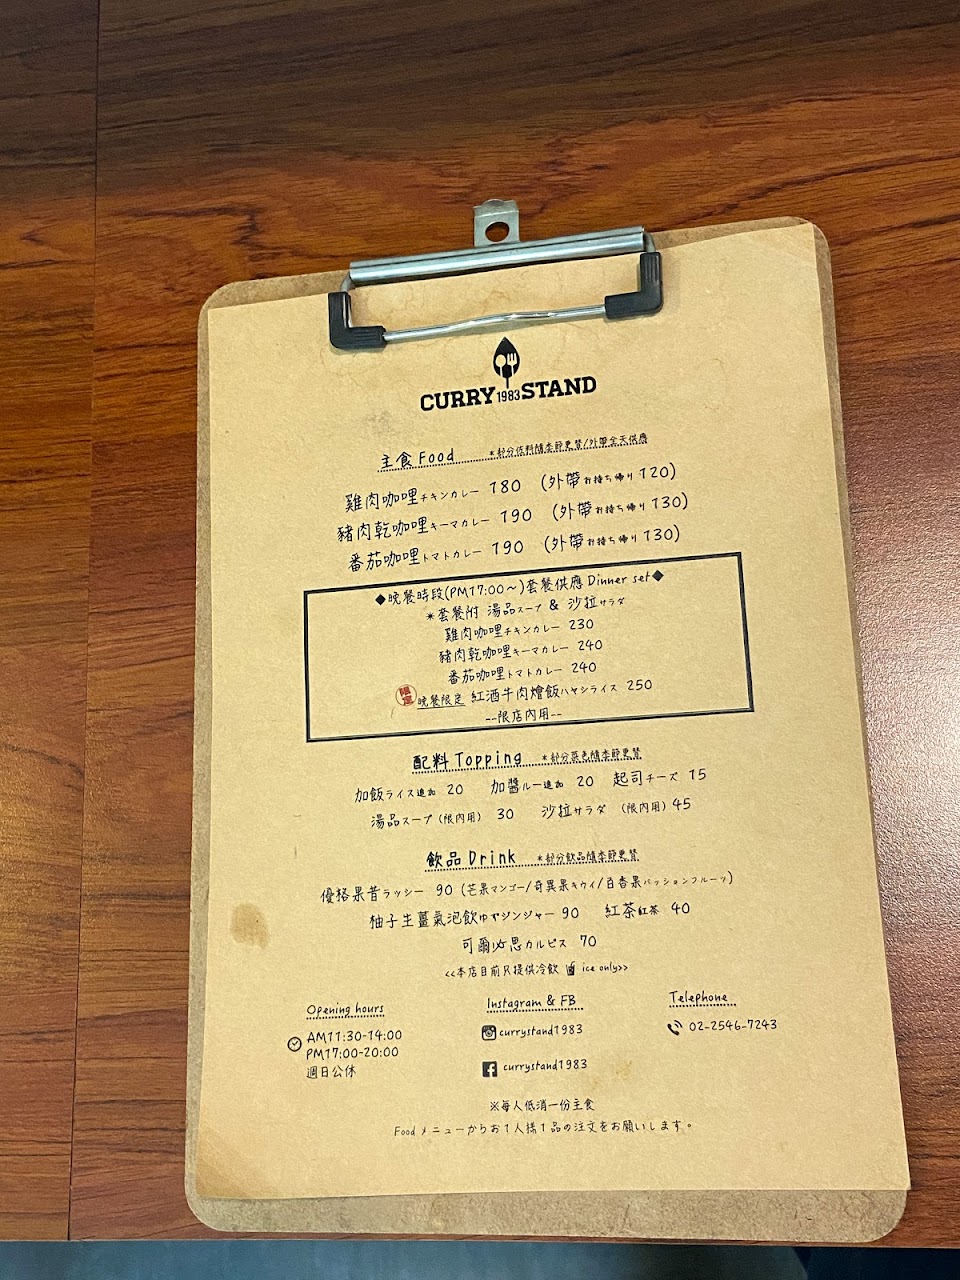 CURRY 1983 STAND
主食 Food *部分佐料隨季節更替/外帶全天供應
雞肉咖哩チキンカレー 180 (外帶お持ち帰り 120)
豬肉乾咖哩キーマカレー 190 (外帶お持ち帰り 130)
番茄咖哩トマトカレー 190 (外帶お持ち帰り 130)
◆晚餐時段(PM17:00~)套餐供應 Dinner set◆
*套餐附 湯品スープ & 沙拉サラダ
雞肉咖哩チキンカレー 230
豬肉乾咖哩キーマカレー 240
番茄咖哩トマトカレー 240
限定 晚餐限定 紅酒牛肉燴飯ハヤシライス 250
--限店內用--
配料 Topping *部分菜色隨季節更替
加飯ライス追加 20 加醬ルー追加 20 起司チーズ 15
湯品スープ (限內用) 30 沙拉サラダ (限內用) 45
飲品 Drink *部分飲品隨季節更替
優格果昔ラッシー 90 (芒果マンゴー/奇異果キウイ/百香果パッションフルーツ)
柚子生薑氣泡飲ゆずジンジャー 90 紅茶紅茶 40
可爾必思カルピス 70
<<本店目前只提供冷飲 ice only>>
Opening hours
AM11:30-14:00
PM17:00-20:00
週日公休
Instagram & FB
currystand1983
currystand1983
Telephone
02-2546-7243
※每人低消一份主食
Food メニューからお1人様1品の注文をお願いします。